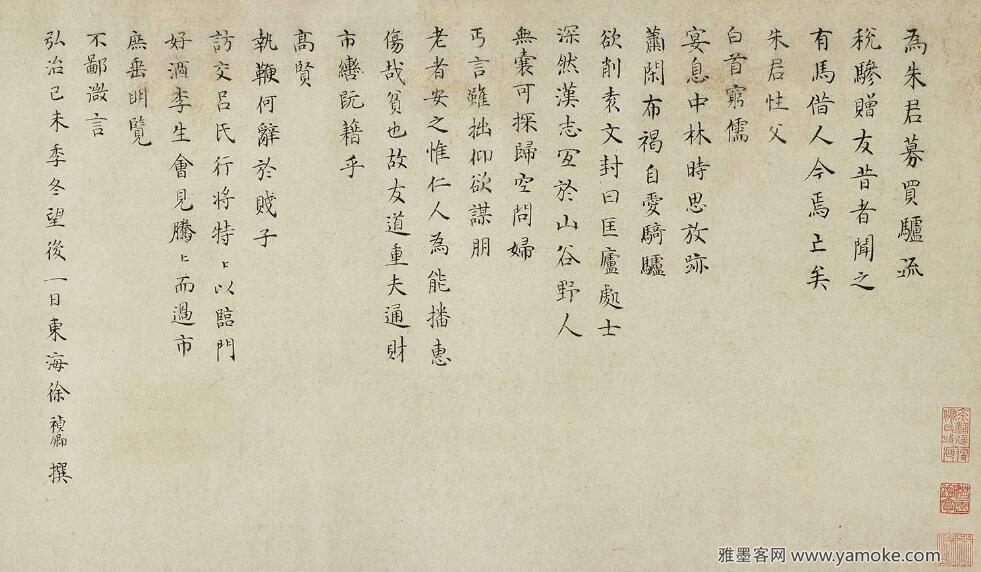 為朱君募買驢疏
稅驂贈友昔者聞之
有馬借人今焉亡矣
朱君性父
白首窮儒
宴息中林時思放跡
蕭閑布褐自愛騎驢
欲削袁文封曰匡廬處士
深然漢志宜於山谷野人
無囊可探歸空問婦
丐言雖拙仰欲謀朋
老者安之惟仁人為能播惠
傷哉貧也故友道重夫通財
市轡阮籍乎
高賢
執鞭何辭於賤子
訪交呂氏行將特〻以臨門
好酒李生會見騰〻而過市
庶垂明覽
不鄙微言
弘治己未季冬望後一日東海徐禎卿撰
雅墨客网 www.yamoke.com